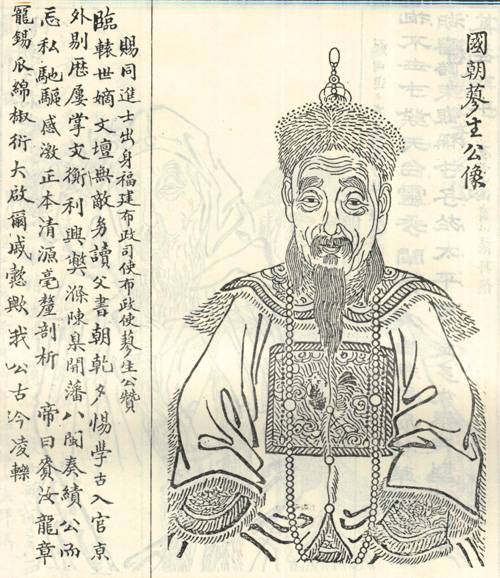 國朝蓼生公像
賜同進士出身福建布政司使布政使蓼生公贊
臨轅世嫡文壇無敵务讀父書朝乾夕惕學古入官京
外剔歷屢掌文衡利興獘滌陳臬開藩八閩奏績公而
忘私馳驅感激正本清源毫釐剖析 帝曰賚汝龍章
寵錫瓜綿椒衍大啟爾戚懿歟我公古今凌轢